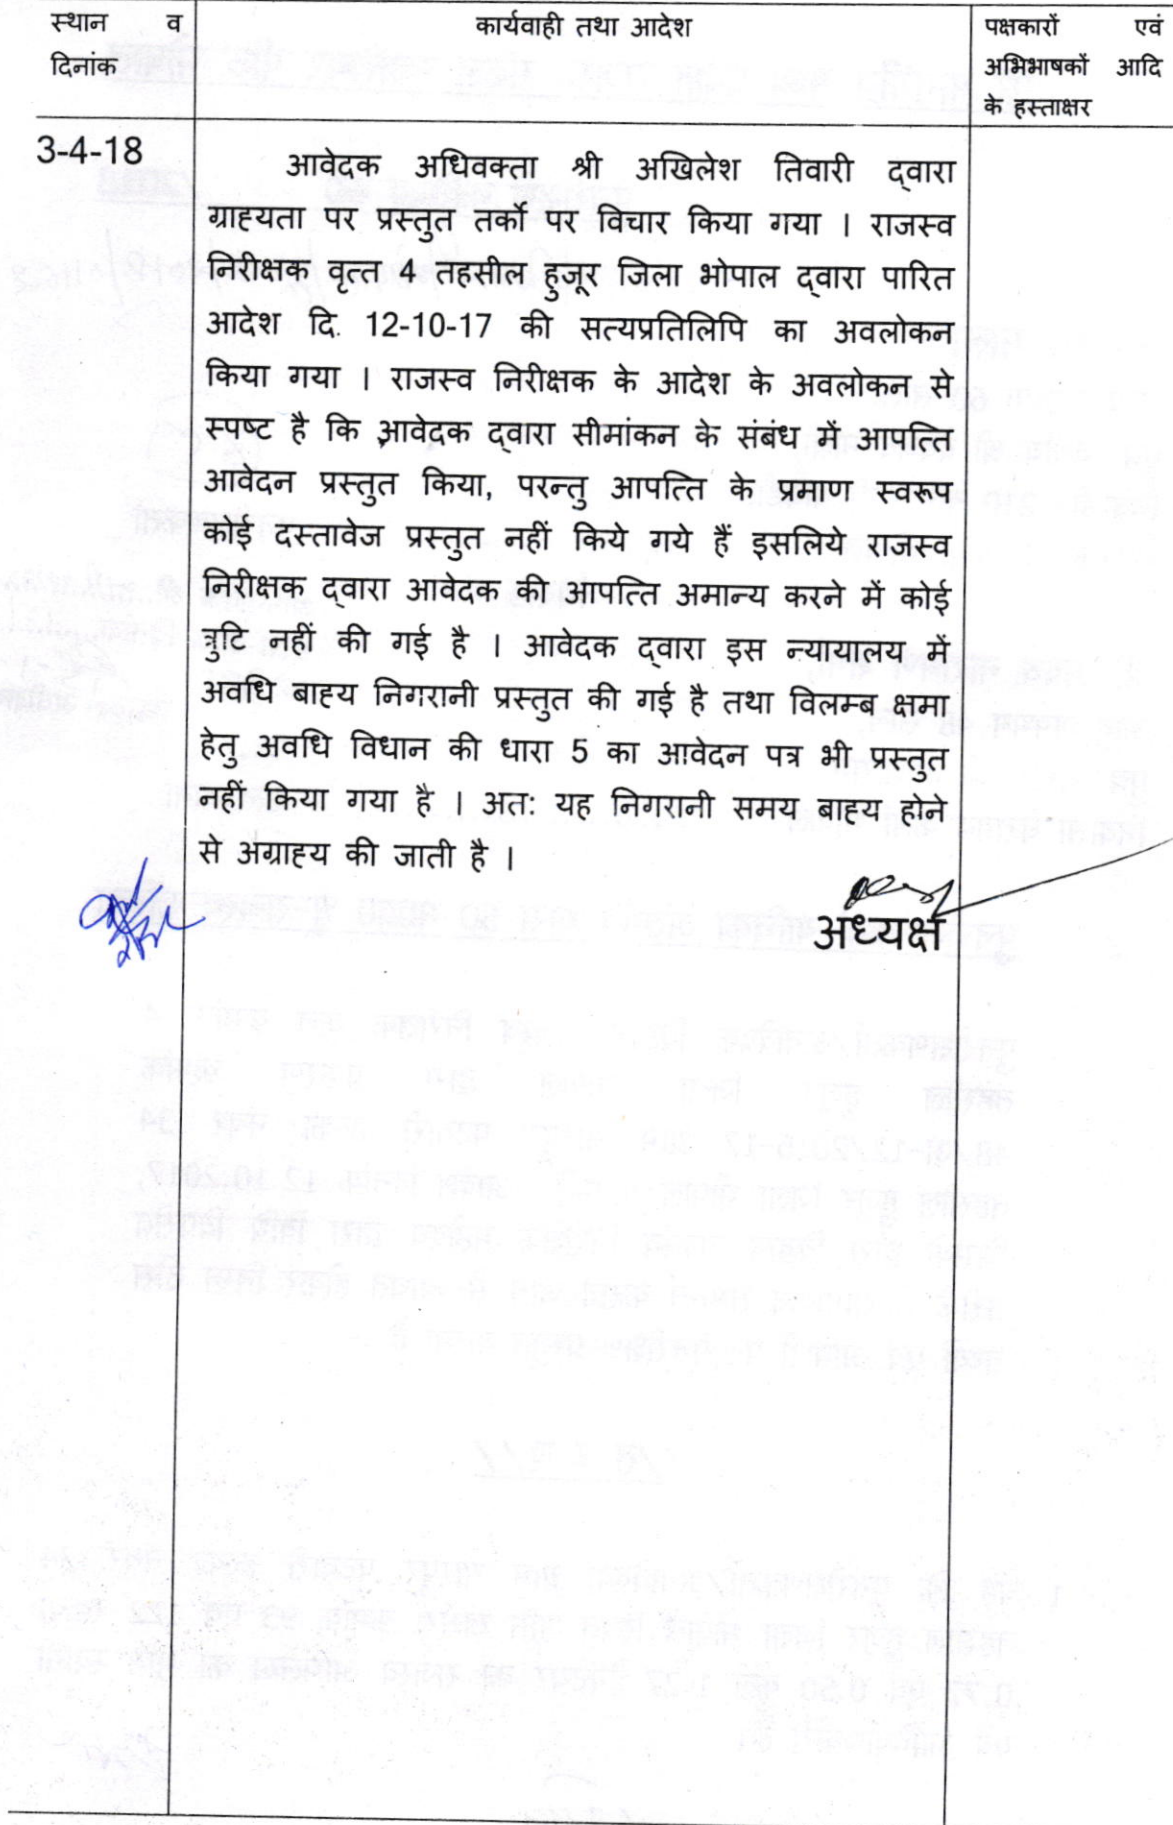 स्थान व
दिनांक
कार्यवाही तथा आदेश
पक्षकारों एवं
अभिभाषकों आदि
के हस्ताक्षर
3-4-18
आवेदक अधिवक्ता श्री अखिलेश तिवारी द्वारा
ग्राह्यता पर प्रस्तुत तर्को पर विचार किया गया । राजस्व
निरीक्षक वृत्त 4 तहसील हुजूर जिला भोपाल द्वारा पारित
आदेश दि. 12-10-17 की सत्यप्रतिलिपि का अवलोकन
किया गया । राजस्व निरीक्षक के आदेश के अवलोकन से
स्पष्ट है कि आवेदक द्वारा सीमांकन के संबंध में आपत्ति
आवेदन प्रस्तुत किया, परन्तु आपत्ति के प्रमाण स्वरूप
कोई दस्तावेज प्रस्तुत नहीं किये गये हैं इसलिये राजस्व
निरीक्षक द्वारा आवेदक की आपत्ति अमान्य करने में कोई
त्रुटि नहीं की गई है । आवेदक द्वारा इस न्यायालय में
अवधि बाह्य निगरानी प्रस्तुत की गई है तथा विलम्ब क्षमा
हेतु अवधि विधान की धारा 5 का आवेदन पत्र भी प्रस्तुत
नहीं किया गया है । अतः यह निगरानी समय बाह्य होने
से अग्राह्य की जाती है ।
अध्यक्ष